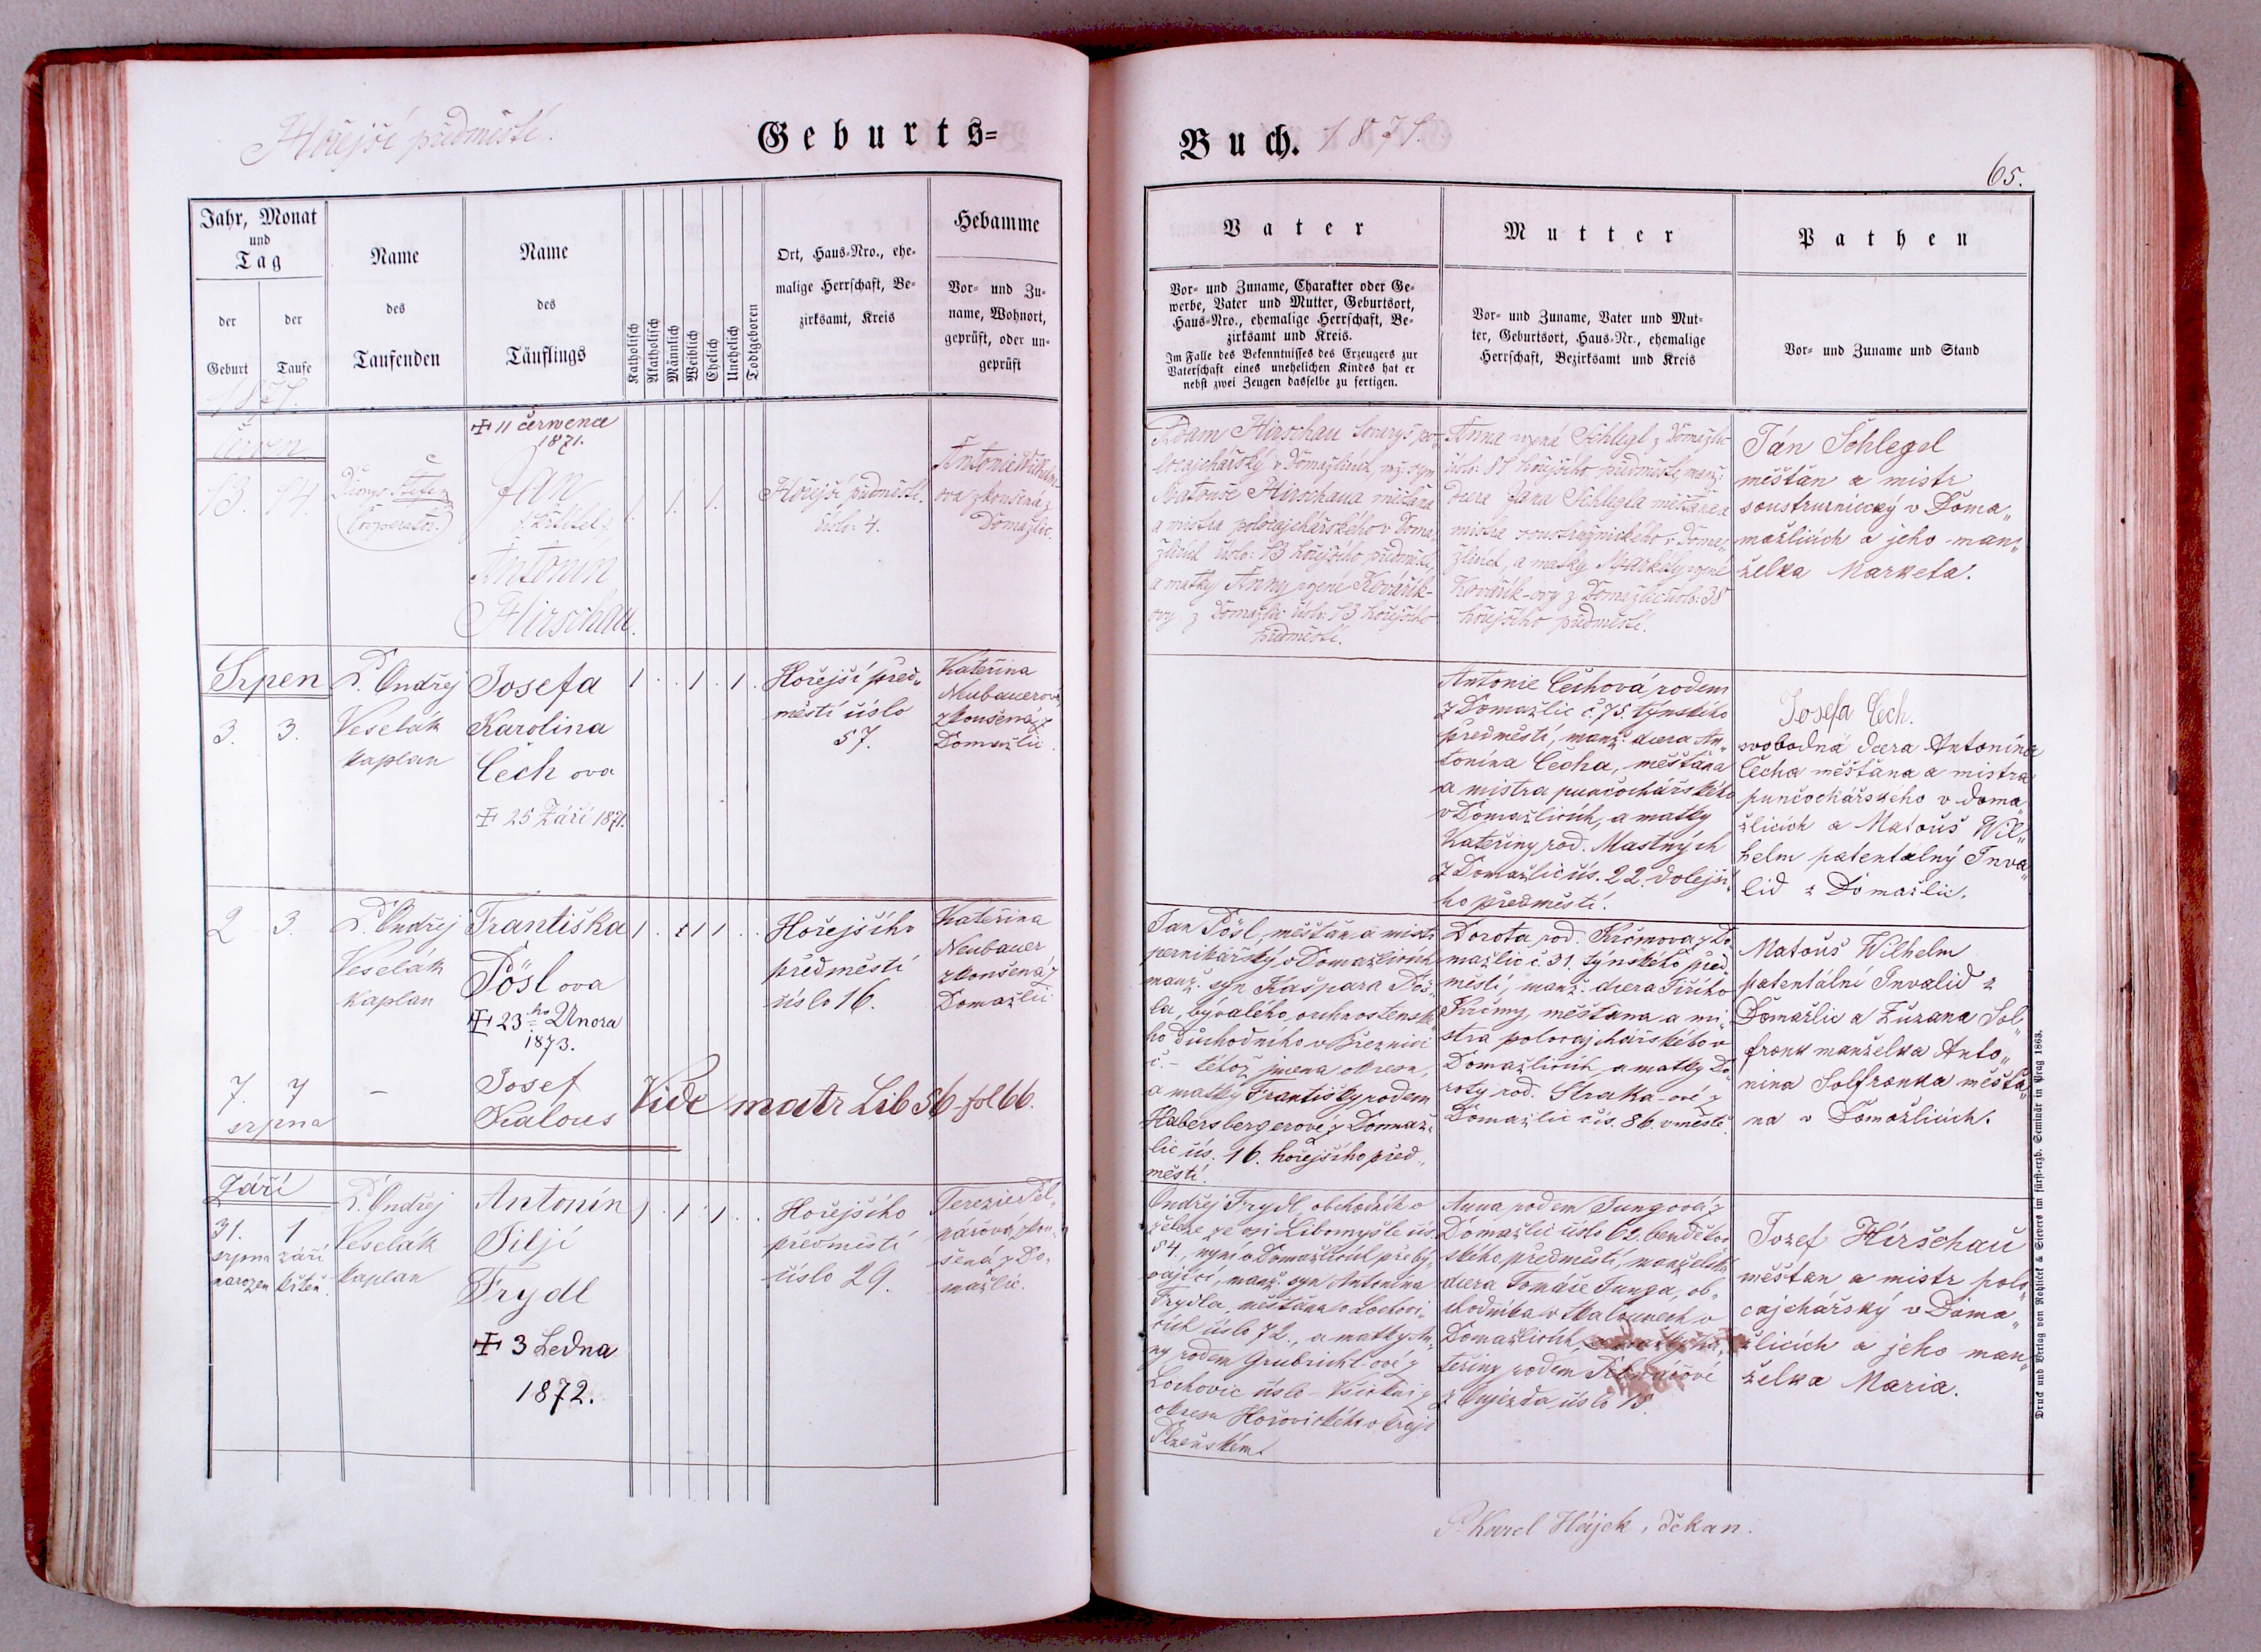 Hořejší předměstí.
Geburts=
Buch. 1871.
65.
Jahr, Monat
und
Tag
der
Geburt
der
Taufe
Name
des
Taufenden
Name
des
Täuflings
Katholisch
Akatholisch
Männlich
Weiblich
Ehelich
Unehelich
Todtgeboren
Ort, Haus=Nro., ehe=
malige Herrschaft, Be=
zirksamt, Kreis
Hebamme
Vor= und Zu=
name, Wohnort,
geprüft, oder un=
geprüft
Vater
Vor= und Zuname, Charakter oder Ge=
werbe, Vater und Mutter, Geburtsort,
Haus=Nro., ehemalige Herrschaft, Be=
zirksamt und Kreis.
Im Falle des Bekenntnisses des Erzeugers zur
Vaterschaft eines unehelichen Kindes hat er
nebst zwei Zeugen dasselbe zu fertigen.
Mutter
Vor= und Zuname, Vater und Mut=
ter, Geburtsort, Haus=Nr., ehemalige
Herrschaft, Bezirksamt und Kreis
Pathen
Vor= und Zuname und Stand
1871.
Červen
13. 14.
Cooperator.
+ 11 července
1871.
Jan
Křtitel
Antonín
Hirschau.
1. 1. 1.
Hořejší předměstí.
číslo: 4.
Antonie Wilhelm-
ova zkoušená z
Domažlic.
Adam Hirschau tovaryš po-
locajchářský v Domažlicích, mž. syn
Matouše Hirschaua měštana
a mistra polocajchářského v Doma„
žlicích číslo: 13 hořejšího předměstí,
a matky Anny rozené Kovářík-
ovy z Domažlic číslo: 13 hořejšího
předměstí.
Anna rozená Schlegl z Domažlic
číslo: 87 hořejšího předměstí, manž:
dcera Jana Schlegla měštana a
mistra soustružnického v Doma„
žlicích, a matky Markéty rozené
Kovářík-ovy z Domažlic číslo: 38
hořejšího předměstí.
Ján Schlegel
měštan a mistr
soustrurnický v Doma„
mažlicích a jeho man„
želka Marketa.
Srpen
3. 3.
P. Ondřej
Veselák
kaplan
Josefa
Karolina
Čech ova
+ 25 Září 1871.
1 . . 1 . 1 .
Hořejší před„
městí číslo
57.
Kateřina
Neubauerová
zkoušená z
Domažlic.
Antonie Čechová rodem
z Domažlic č. 75. týnského
předměstí, manž. dcera An„
tonína Čecha, měštana
a mistra punčochářského
v Domažlicích, a matky
Kateřiny rod. Mastných
z Domažlic čís. 22. dolejší„
ho předměstí.
Josefa Čech.
svobodná dcera Antonína
Čecha měštana a mistra
punčochářského v Doma„
žlicích a Matouš Wil„
helm patentalný Inva„
lid z Domažlic.
2 3.
P. Ondřej
Veselák
kaplan
Františka
Pösl ova
+ 23ho Unora
1873.
Hořejšího
předměstí
číslo 16.
Kateřina
Neubauer
zkoušená z
Domažlic
Jan Pösl, měštan a mistr
pernikářský v Domažlicích
manž. syn Kašpara Pös„
la, bývalého vrchnostensk„
ho důchodního v Březnici
č. – téhož jmena okresu,
a matky Františky rodem
Habersbergerové z Domaž„
lic čís. 16. hořejšího před„
městí.
Dorota rod. Krčmova z Do„
mažlic č 31. týnského před„
městí, manž. dcera Jiřího
Krčmy, měštana a mi„
stra polocajchářského v
Domažlicích, a matky Do„
roty rod. Straka-ové z
Domažlic čís. 86. v městě.
Matouš Wilhelm
patentální Invalid z
Domažlic a Zuzana Sol„
fronk manželka Anto„
nina Solfronka měšťa„
na v Domažlicích.
7. 7
srpna
–
Josef
Kalous
Vide matr Lib 56 fol 66.
Září
31. 1
srpna září
narozen křtěn
P. Ondřej
Veselák
kaplan
Antonín
Jiljí
Frydl
+ 3 Ledna
1872.
Hořejšího
předměstí
číslo 29.
Terezie Pel„
nářová, zkou„
šená z Do„
mažlic.
Ondřej Frydl, obchodník v
železe ze vsi Libomyšle čís.
54., nyní v Domažlicích přebý„
vající, manž. syn Antonína
Frydla, měštana v Lochovi„
cích číslo 72., a matky An„
ny rodem Grubricht-ové z
Lochovic číslo – Všickni z
okresu Hořovického v kraji
Plzeňském.
Anna rodem Jungová z
Domažlic číslo 62. bendekov
ského předměstí, manželská
dcera Tomáše Junga, ob„
chodníka v kalounech v
Domažlicích, a matky Ka„
teřiny rodem Pelnářové
z Oujezda číslo 18.
Jozef Hirschau
měštan a mistr polo„
cajchářský v Doma„
žlicích a jeho man„
želka Maria.
P. Karel Hájek, děkan.
Druck und Verlag von Rohliček & Sievers im fürst=erzb. Seminär in Prag 1863.